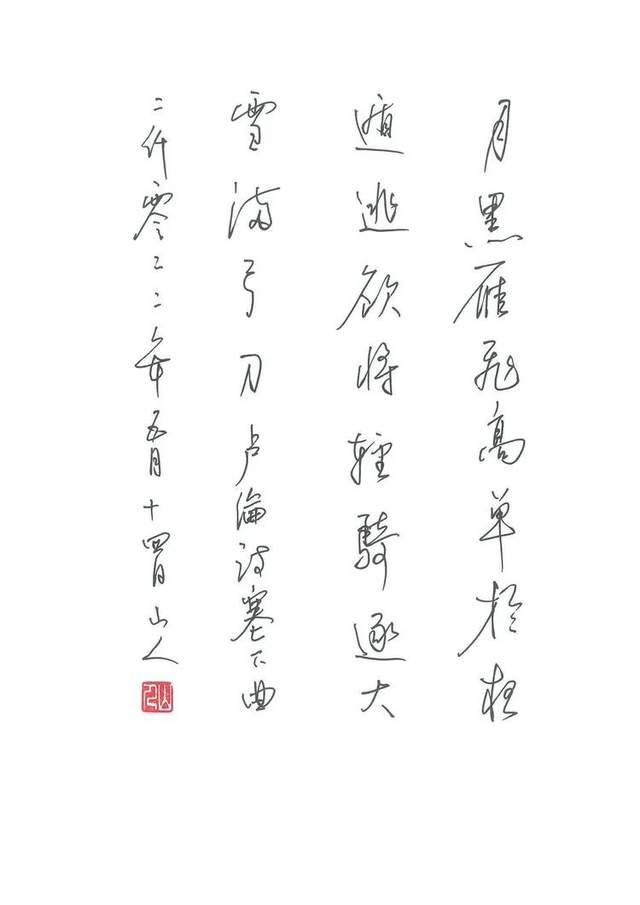 月黑雁飛高单於夜
遁逃欲将輕騎逐大
雪满弓刀卢倫诗塞下曲
二仟零二二年五月十四日山人
山人